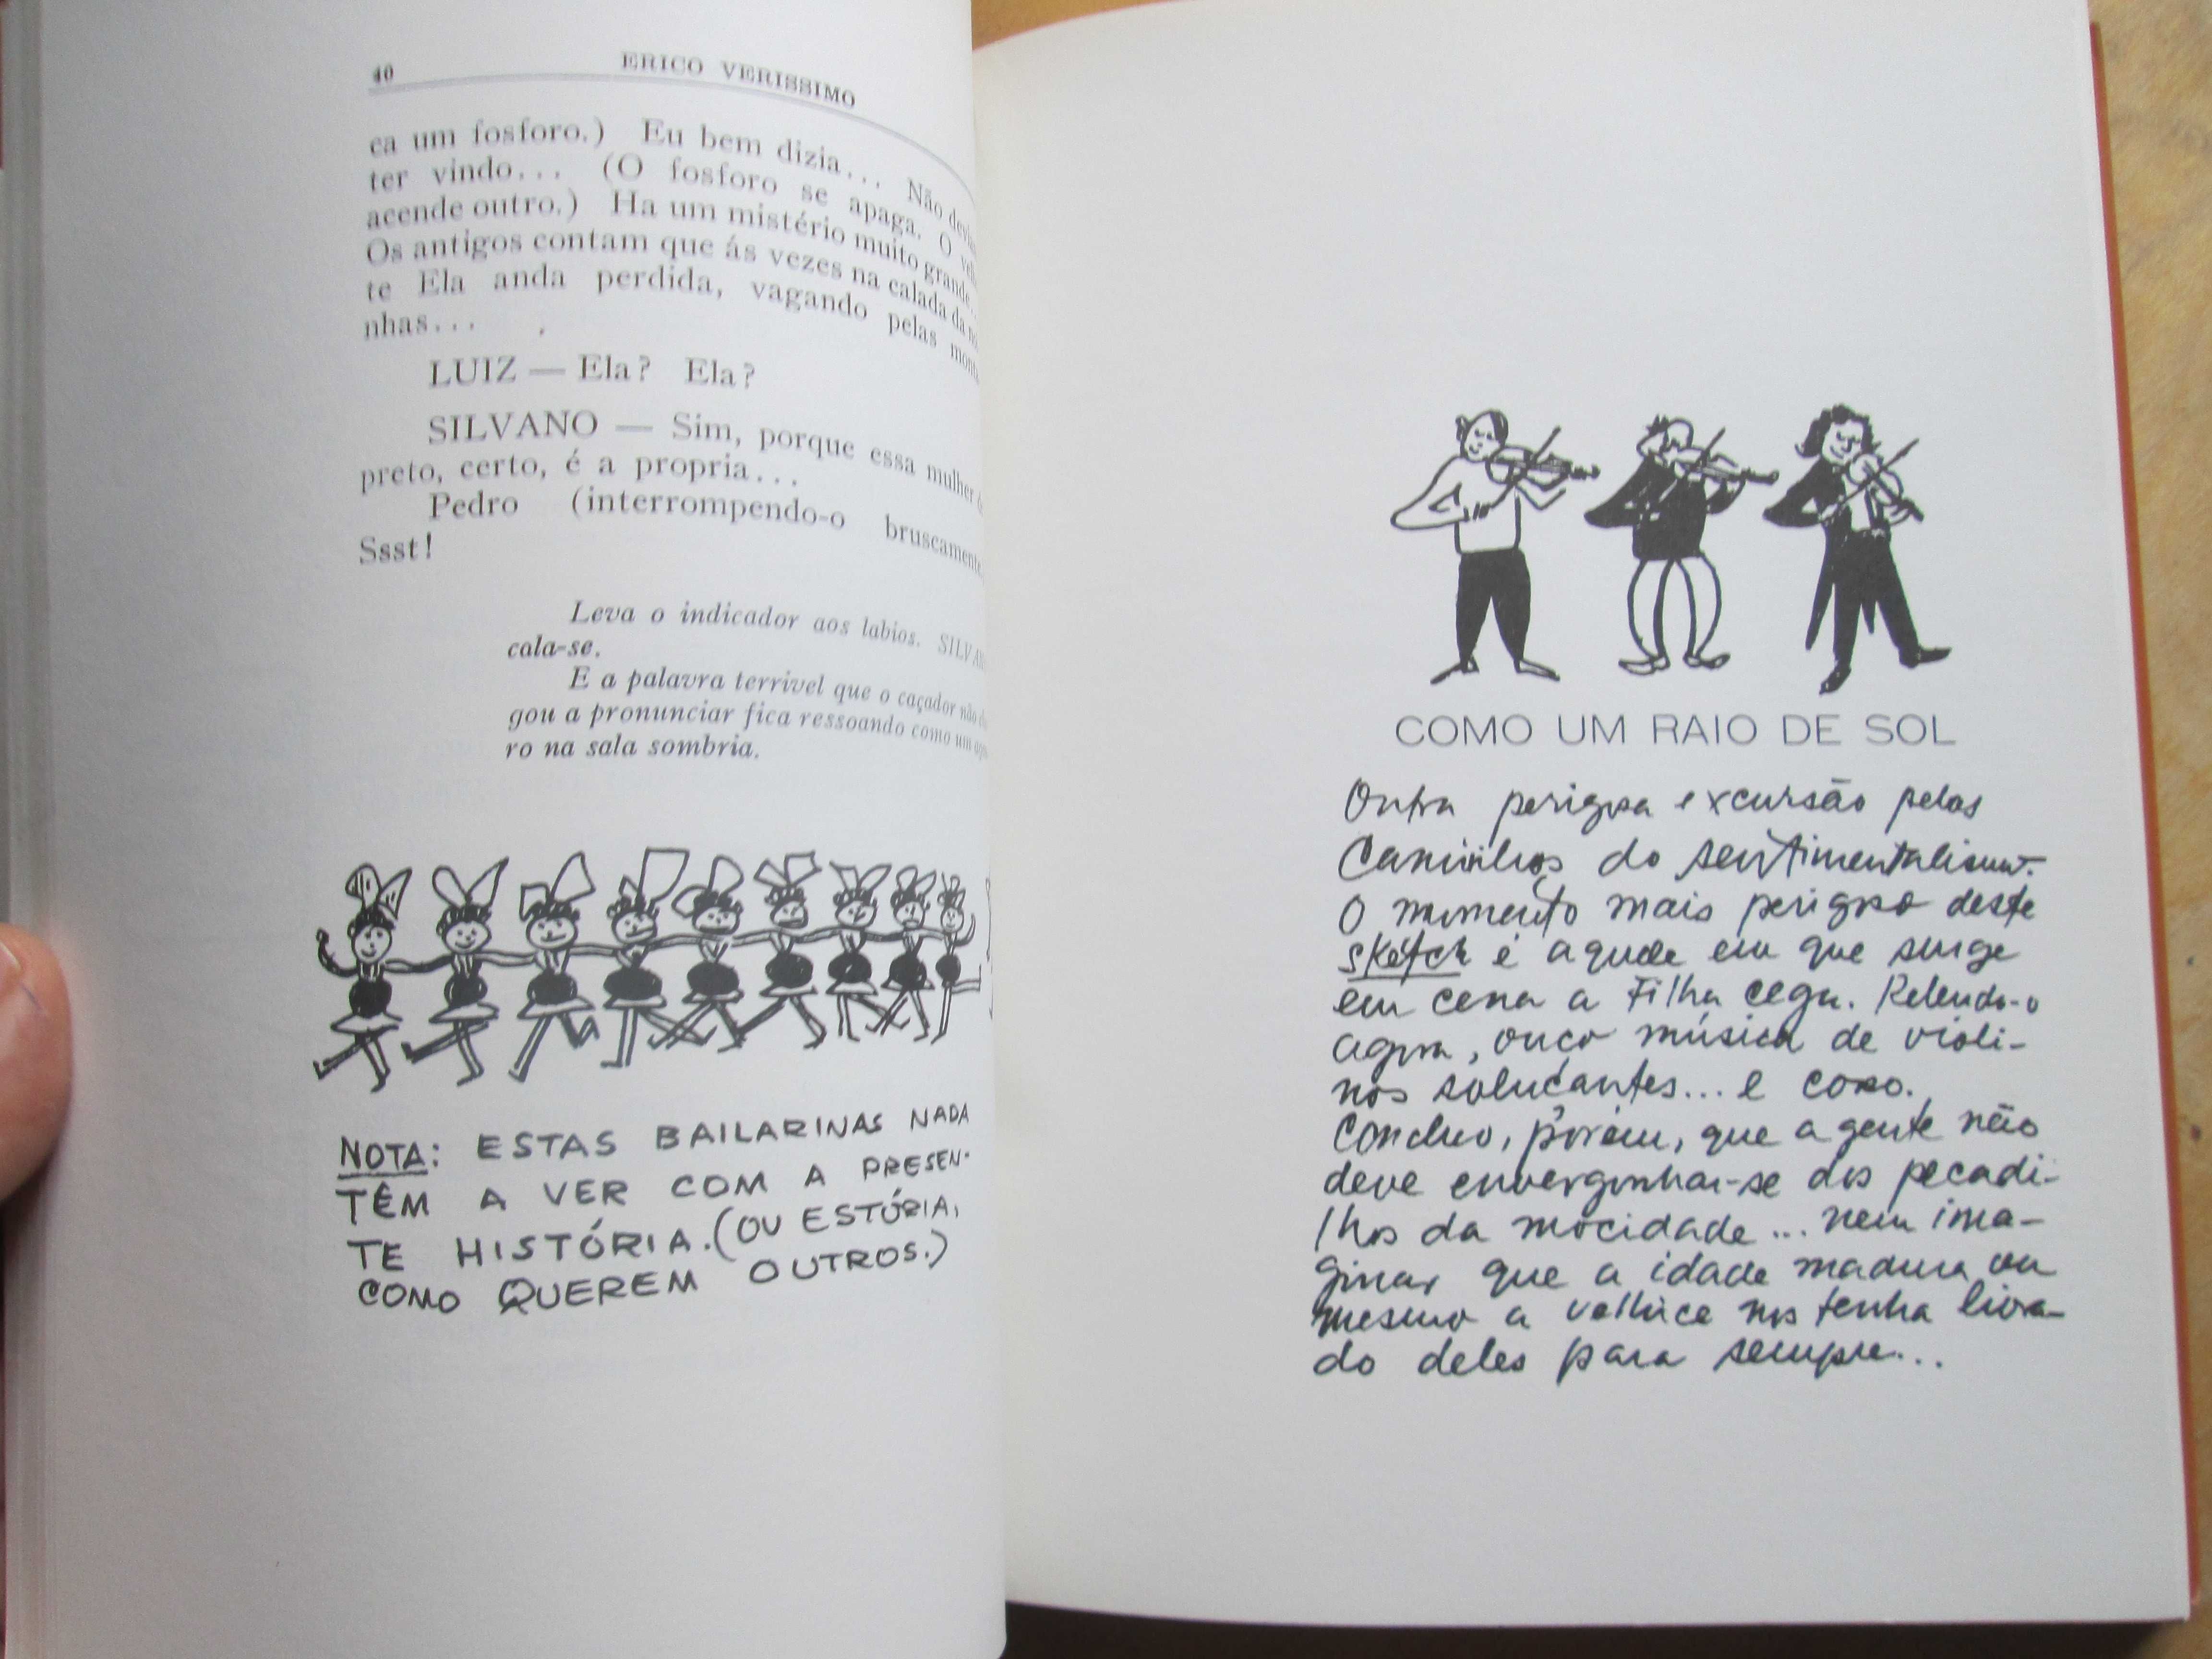 40 ERICO VERISSIMO
ca um fosforo.) Eu bem dizia... Não devia
ter vindo... (O fosforo se apaga. O
acende outro.) Ha um mistério muito grande...
Os antigos contam que ás vezes na calada da
te Ela anda perdida, vagando pelas
nhas...
LUIZ — Ela? Ela?
SILVANO — Sim, porque essa mulher
preto, certo, é a propria...
Pedro (interrompendo-o bruscamente
Ssst!
Leva o indicador aos labios.
cala-se.
E a palavra terrivel que o caçador não
gou a pronunciar fica ressoando como um
ro na sala sombria.
NOTA: ESTAS BAILARINAS NADA
TÊM A VER COM A PRESEN-
TE HISTÓRIA. (OU ESTÓRIA,
COMO QUEREM OUTROS.)
COMO UM RAIO DE SOL
Outra perigosa excursão pelos
Caminhos do sentimentalismo.
O momento mais perigoso deste
skétch é aquele em que surge
em cena a Filha cega. Relendo-o
agora, ouço música de violi-
nos soluçantes... e coro.
Concluo, porém, que a gente não
deve envergonhar-se dos pecadi-
lhos da mocidade... nem ima-
ginar que a idade madura ou
mesmo a velhice nos tenha livra-
do deles para sempre...